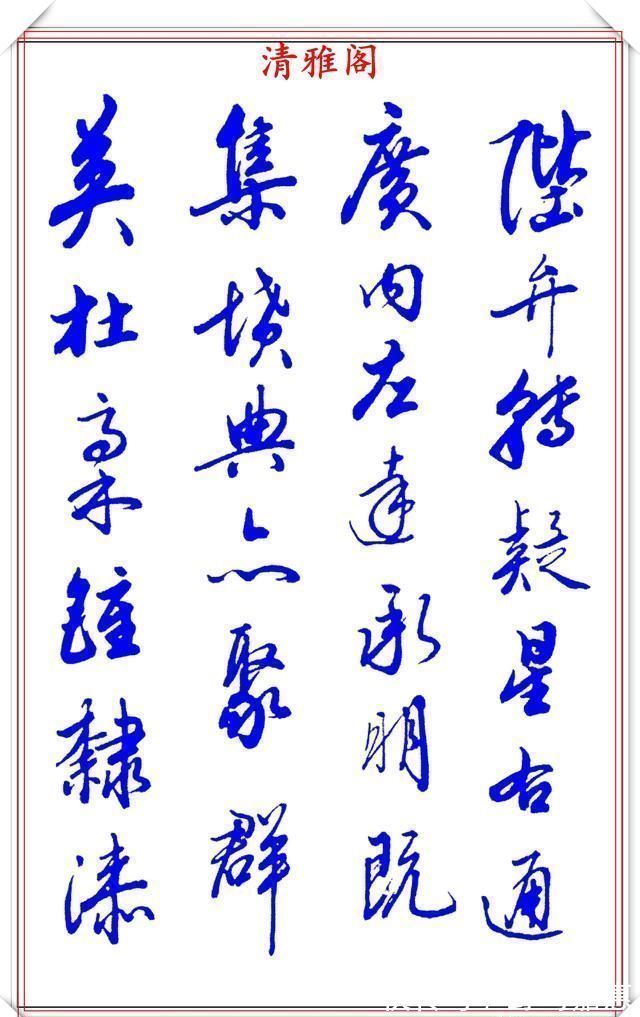 清雅阁
陛弁转疑星右通
廣内左達承明既
集墳典亦聚群
英杜稾鍾隸漆